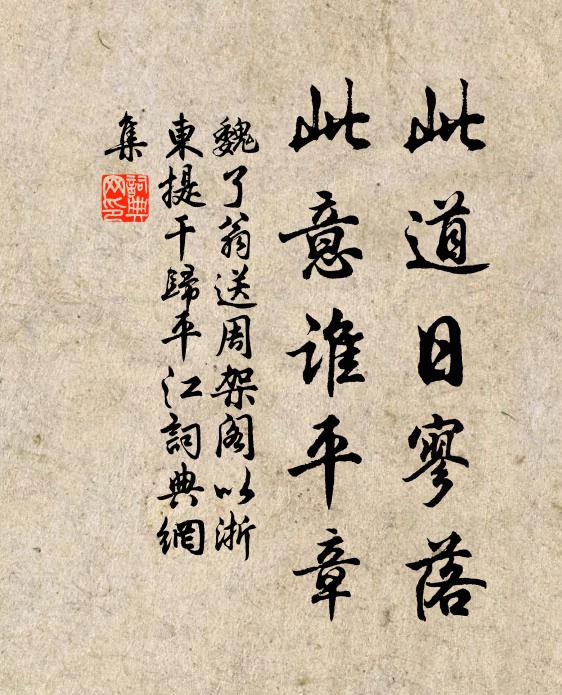 此道日寥落
此意誰平章
魏了翁送周架阁以浙
東提干歸平江詞典網
集
詞典
网印